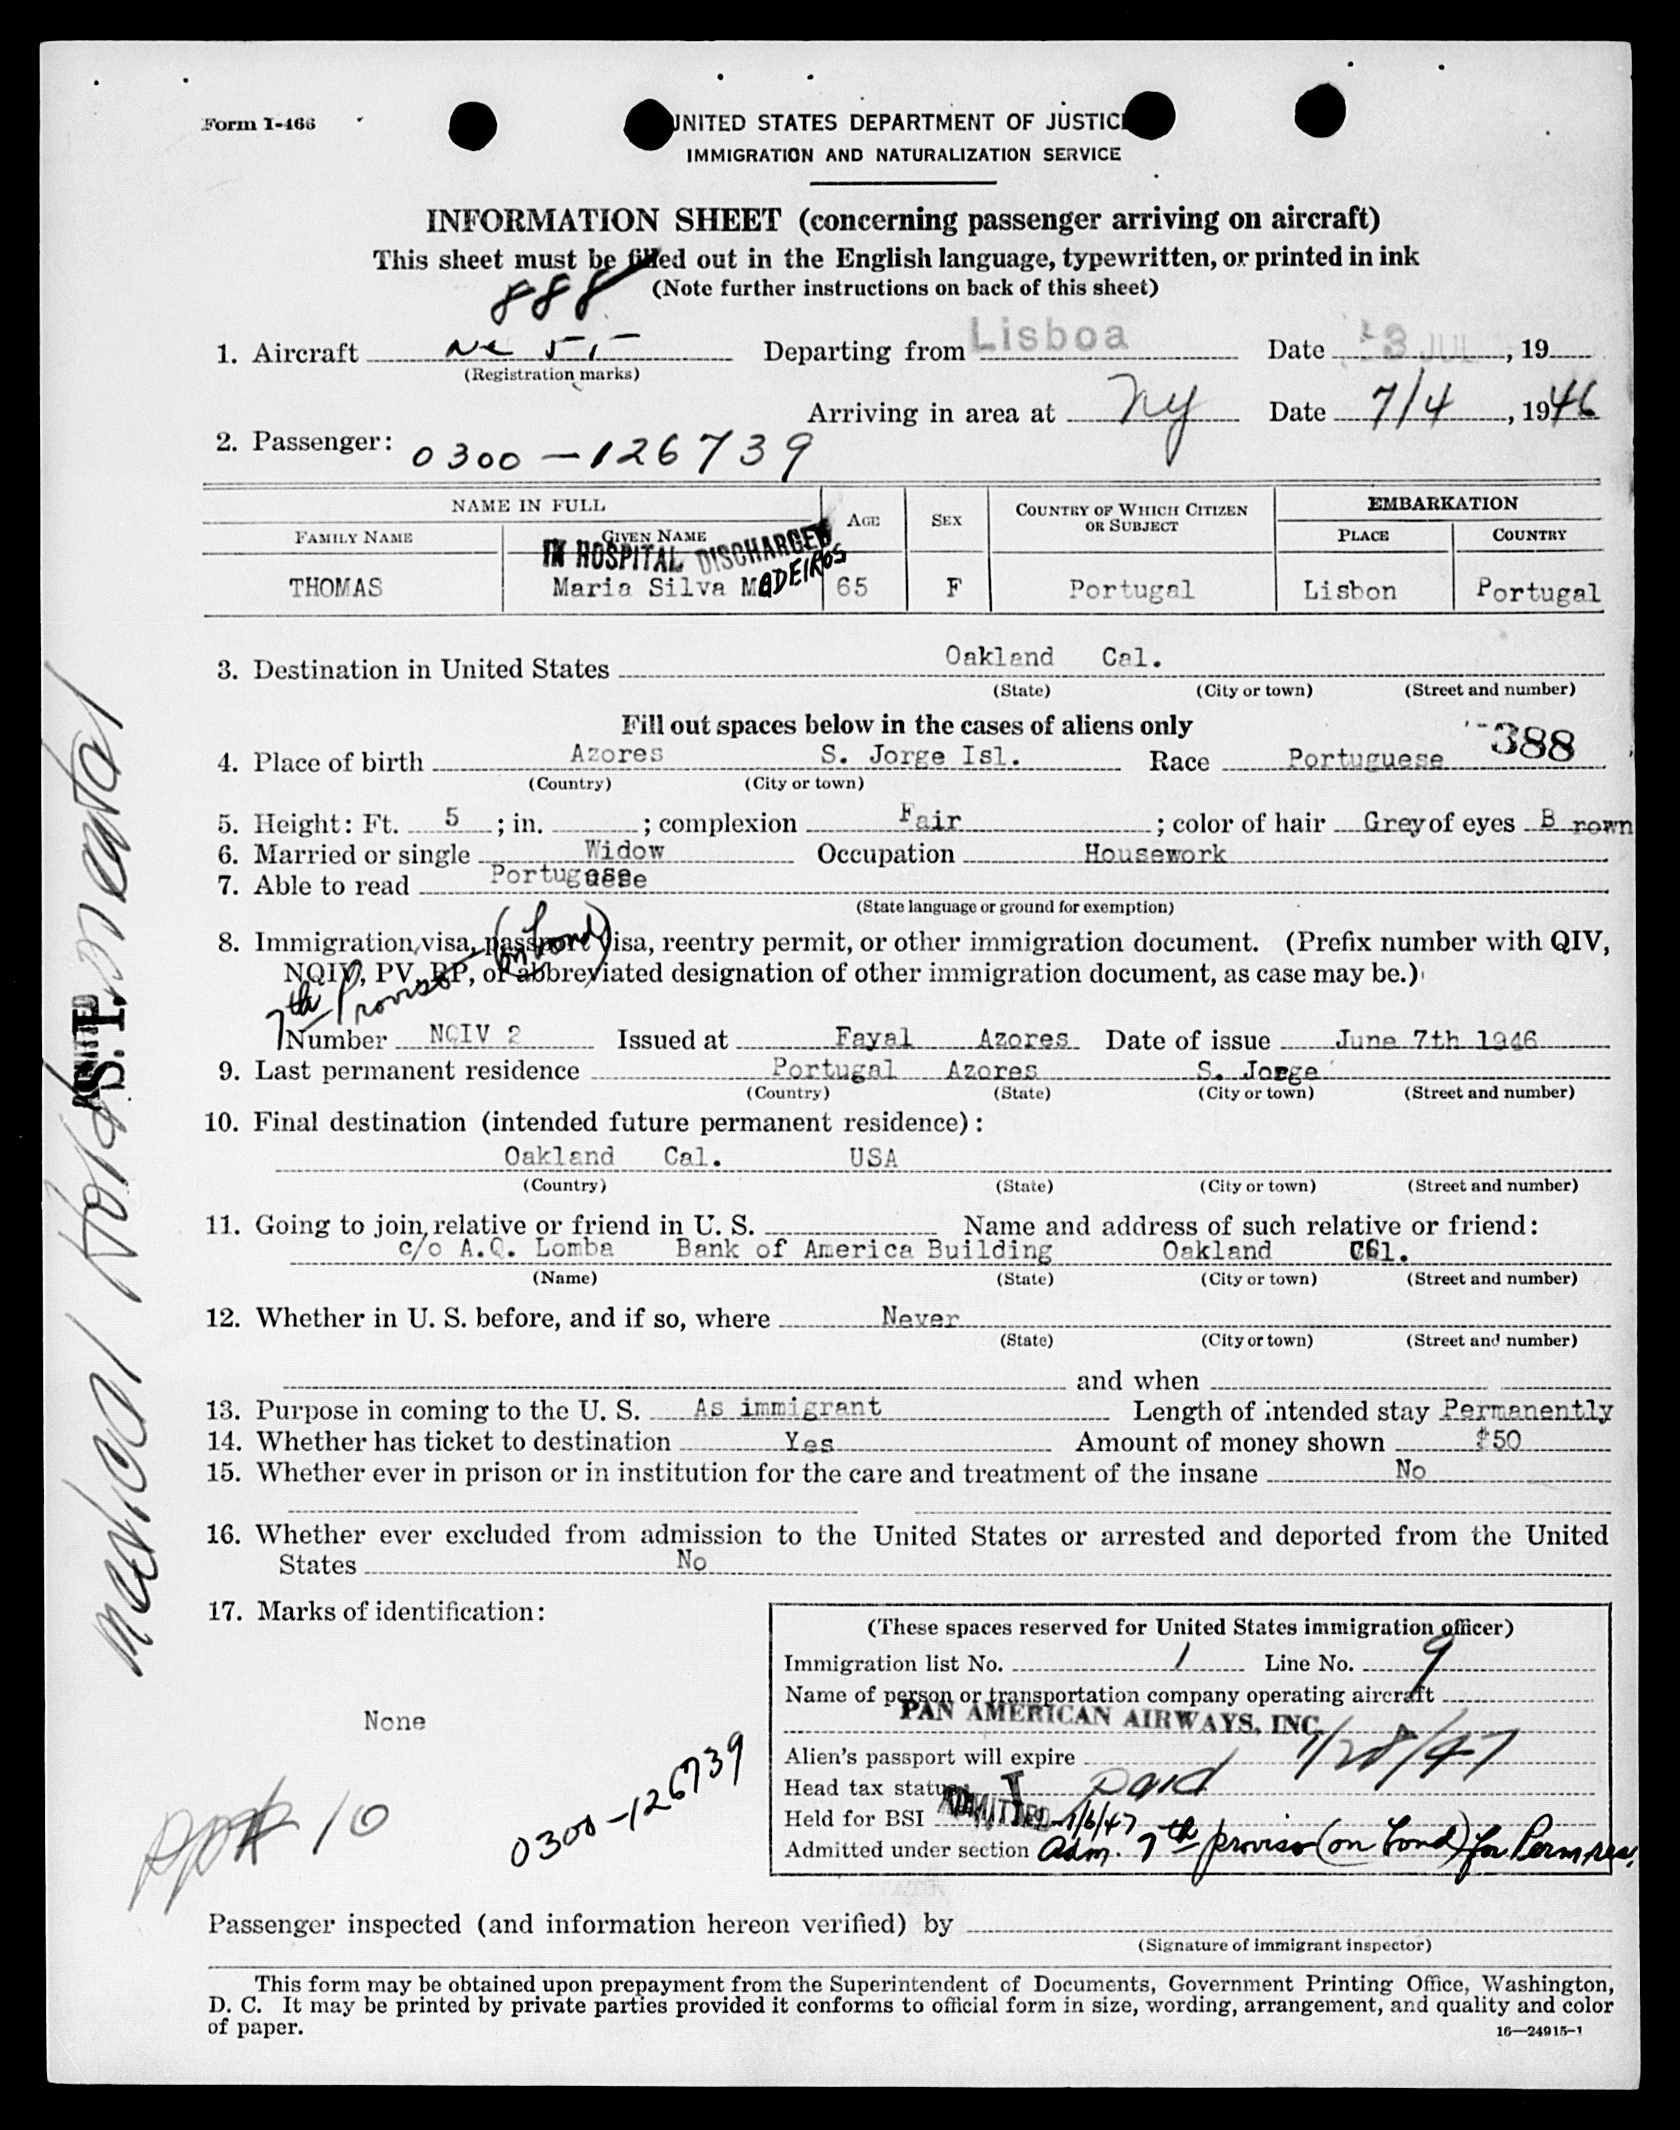 Form I-466
UNITED STATES DEPARTMENT OF JUSTICE
IMMIGRATION AND NATURALIZATION SERVICE
INFORMATION SHEET (concerning passenger arriving on aircraft)
This sheet must be filled out in the English language, typewritten, or printed in ink
(Note further instructions on back of this sheet)
888
1. Aircraft Departing from Lisboa Date 3 JUL , 19
(Registration marks)
Arriving in area at NY Date 7/4 , 1946
2. Passenger: 0300-126739
NAME IN FULL AGE SEX COUNTRY OF WHICH CITIZEN OR SUBJECT EMBARKATION
FAMILY NAME GIVEN NAME PLACE COUNTRY
IN HOSPITAL DISCHARGED
THOMAS Maria Silva MADEIROS 65 F Portugal Lisbon Portugal
3. Destination in United States Oakland Cal.
(State) (City or town) (Street and number)
Fill out spaces below in the cases of aliens only
388
4. Place of birth Azores S. Jorge Isl. Race Portuguese
(Country) (City or town)
5. Height: Ft. 5 ; in. ; complexion Fair ; color of hair Grey of eyes Brown
6. Married or single Widow Occupation Housework
7. Able to read Portuguese
(State language or ground for exemption)
8. Immigration visa, passport visa, reentry permit, or other immigration document. (Prefix number with QIV,
NQIV, PV, RP, or abbreviated designation of other immigration document, as case may be.)
7th Proviso (on bond)
Number NQIV 2 Issued at Fayal Azores Date of issue June 7th 1946
9. Last permanent residence Portugal Azores S. Jorge
(Country) (State) (City or town) (Street and number)
10. Final destination (intended future permanent residence):
Oakland Cal. USA
(Country) (State) (City or town) (Street and number)
11. Going to join relative or friend in U. S. Name and address of such relative or friend:
c/o A.Q. Lomba Bank of America Building Oakland Cal.
(Name) (State) (City or town) (Street and number)
12. Whether in U. S. before, and if so, where Never
(State) (City or town) (Street and number)
and when
13. Purpose in coming to the U. S. As immigrant Length of intended stay Permanently
14. Whether has ticket to destination Yes Amount of money shown $50
15. Whether ever in prison or in institution for the care and treatment of the insane No
16. Whether ever excluded from admission to the United States or arrested and deported from the United
States No
17. Marks of identification:
None
0300-126739
10
(These spaces reserved for United States immigration officer)
Immigration list No. 1 Line No. 9
Name of person or transportation company operating aircraft
PAN AMERICAN AIRWAYS, INC.
Alien's passport will expire 7/28/47
Head tax status paid
Held for BSI ADMITTED 1/6/47
Admitted under section Adm. 7th proviso (on bond) for Perm res.
Passenger inspected (and information hereon verified) by
(Signature of immigrant inspector)
This form may be obtained upon prepayment from the Superintendent of Documents, Government Printing Office, Washington,
D. C. It may be printed by private parties provided it conforms to official form in size, wording, arrangement, and quality and color
of paper.
16—24915-1
Medical Hold mental
ADMITTED
S. I.